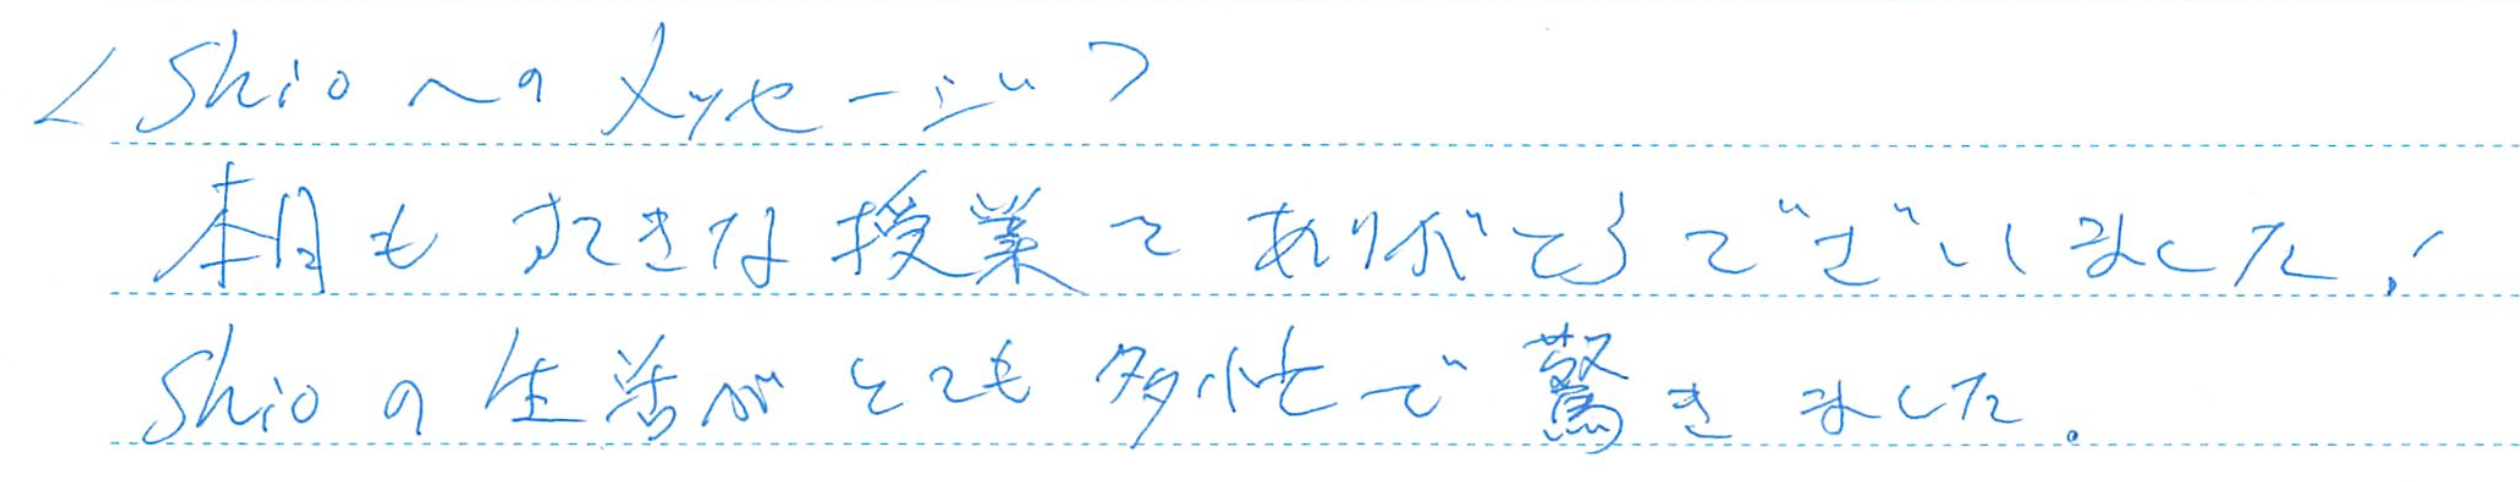 <Shioへのメッセージ>
本日もすてきな授業をありがとうございました!
Shioの生活がとても多忙で驚きました。